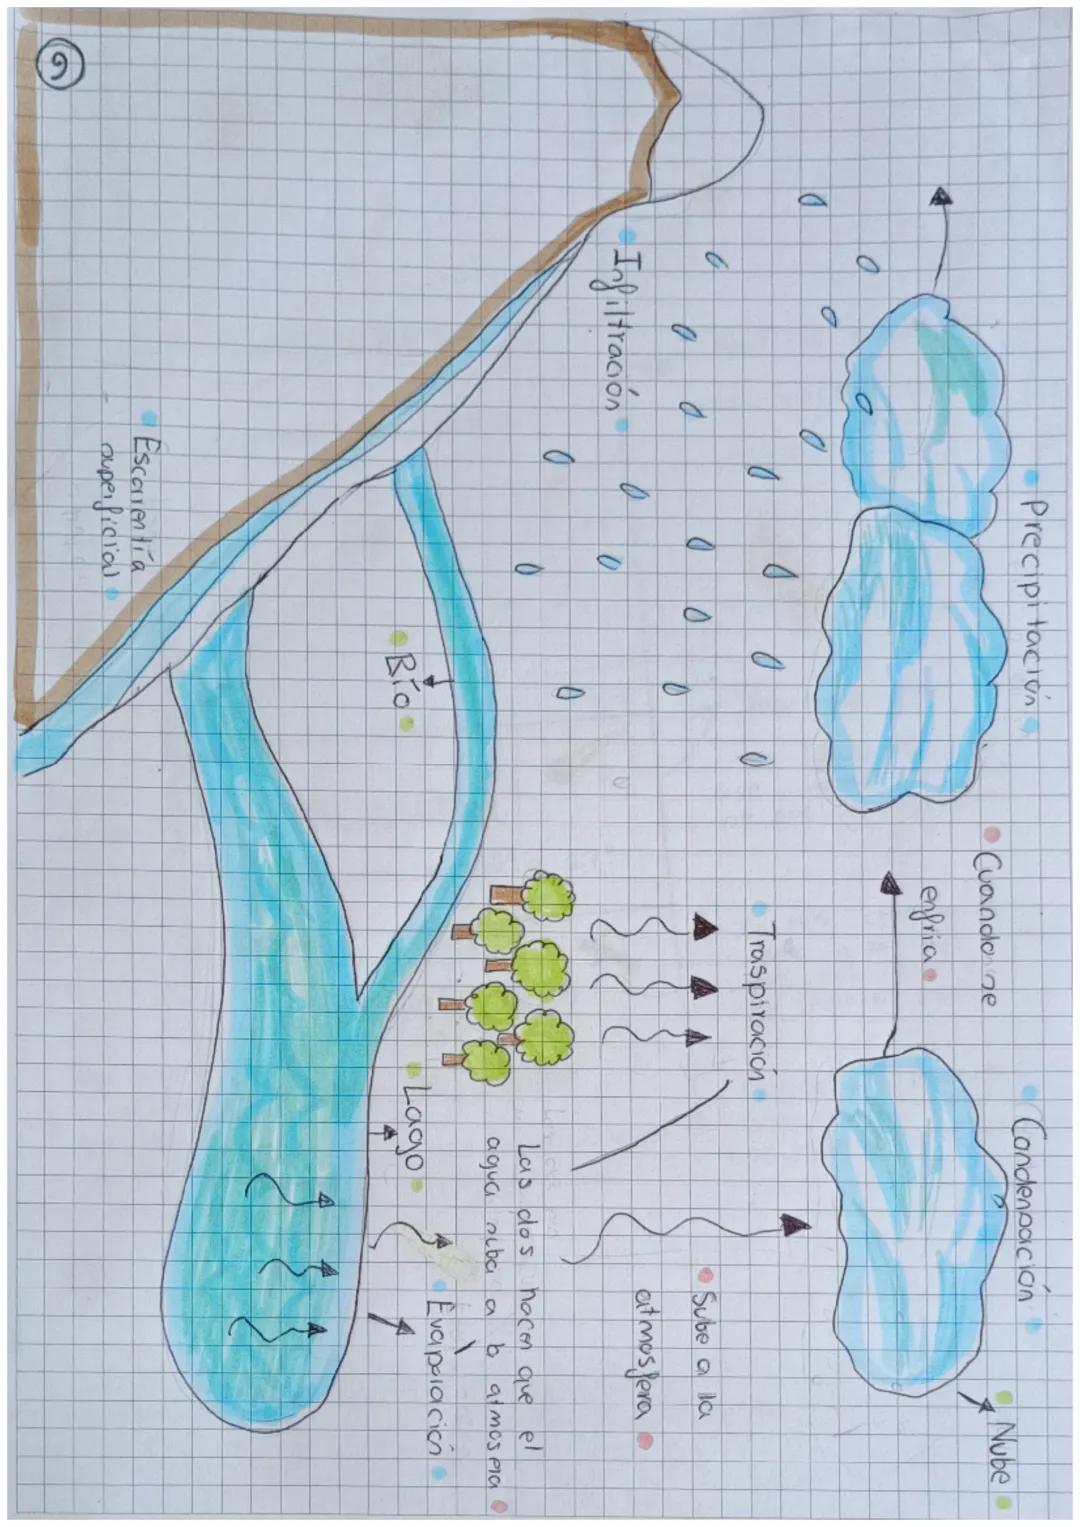 Precipitación
Condensación
Nube
Cuando se
enfría
Traspiración
Sube a la
atmosfera
Infiltración
Las dos hacen que el
agua suba a la atmosera
Evaporación
Lago
Río
Escorrentía
superficial